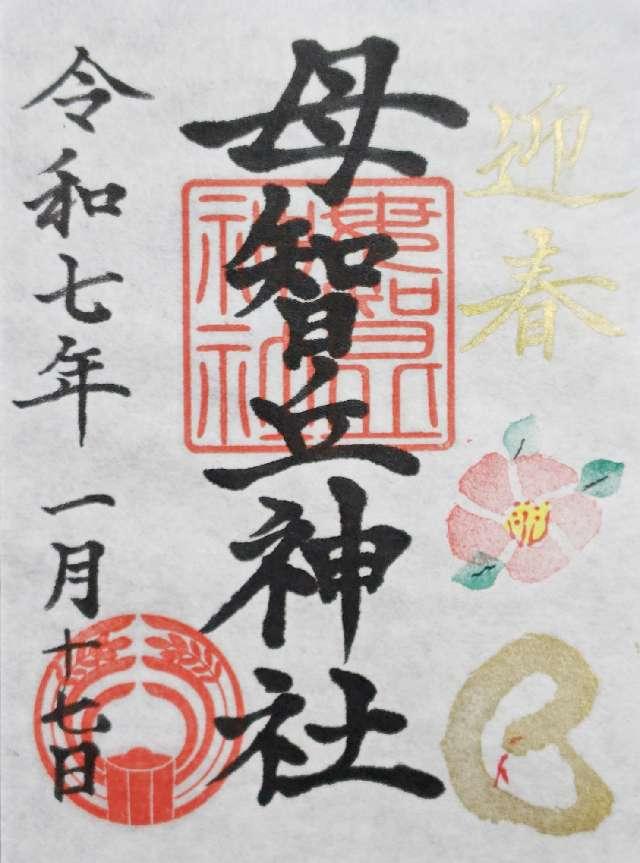 迎春
母智丘神社
令和七年 一月十七日